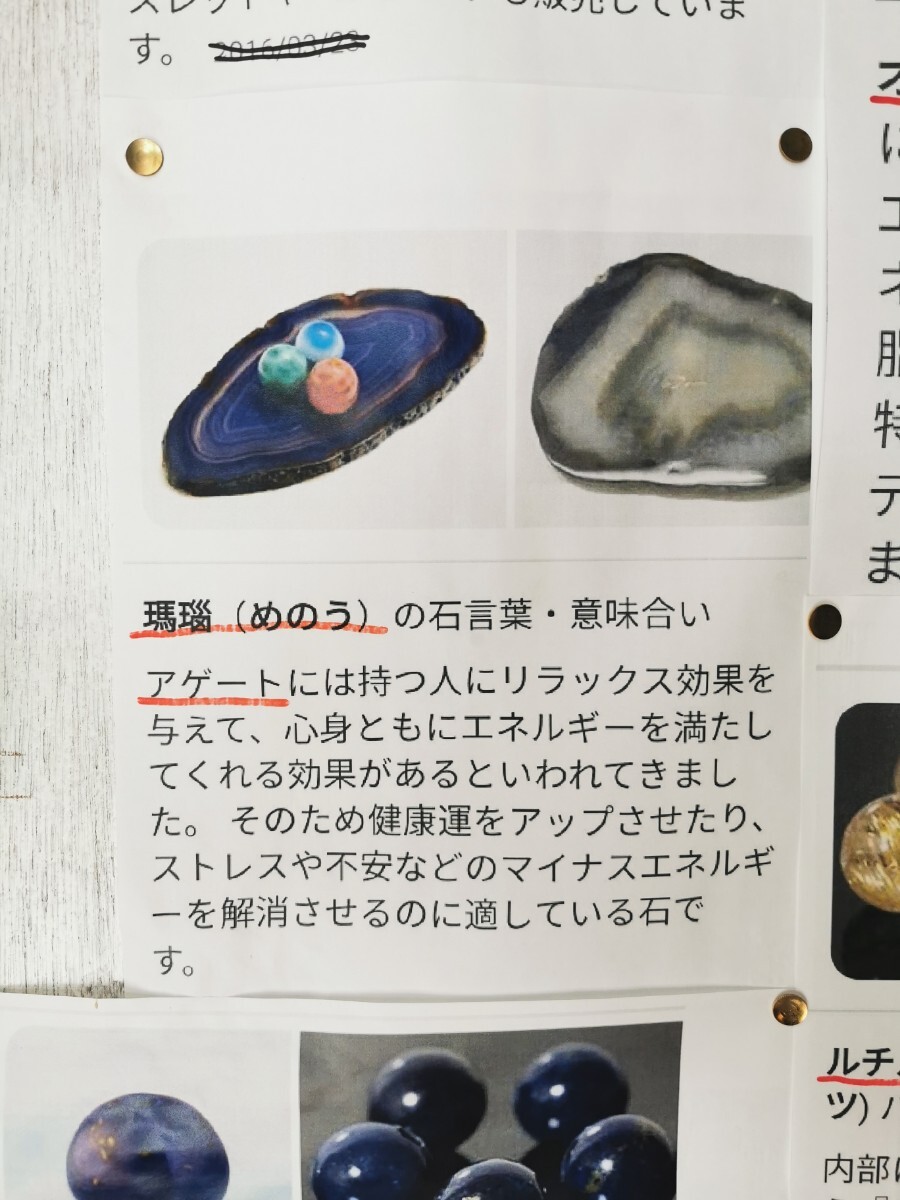 す。 2016/03/23
瑪瑙（めのう）の石言葉・意味合い
アゲートには持つ人にリラックス効果を
与えて、心身ともにエネルギーを満たし
てくれる効果があるといわれてきまし
た。 そのため健康運をアップさせたり、
ストレスや不安などのマイナスエネルギ
ーを解消させるのに適している石で
す。
に
エ
ネ
服
特
デ
ま
ルチ
ツ) 
内部